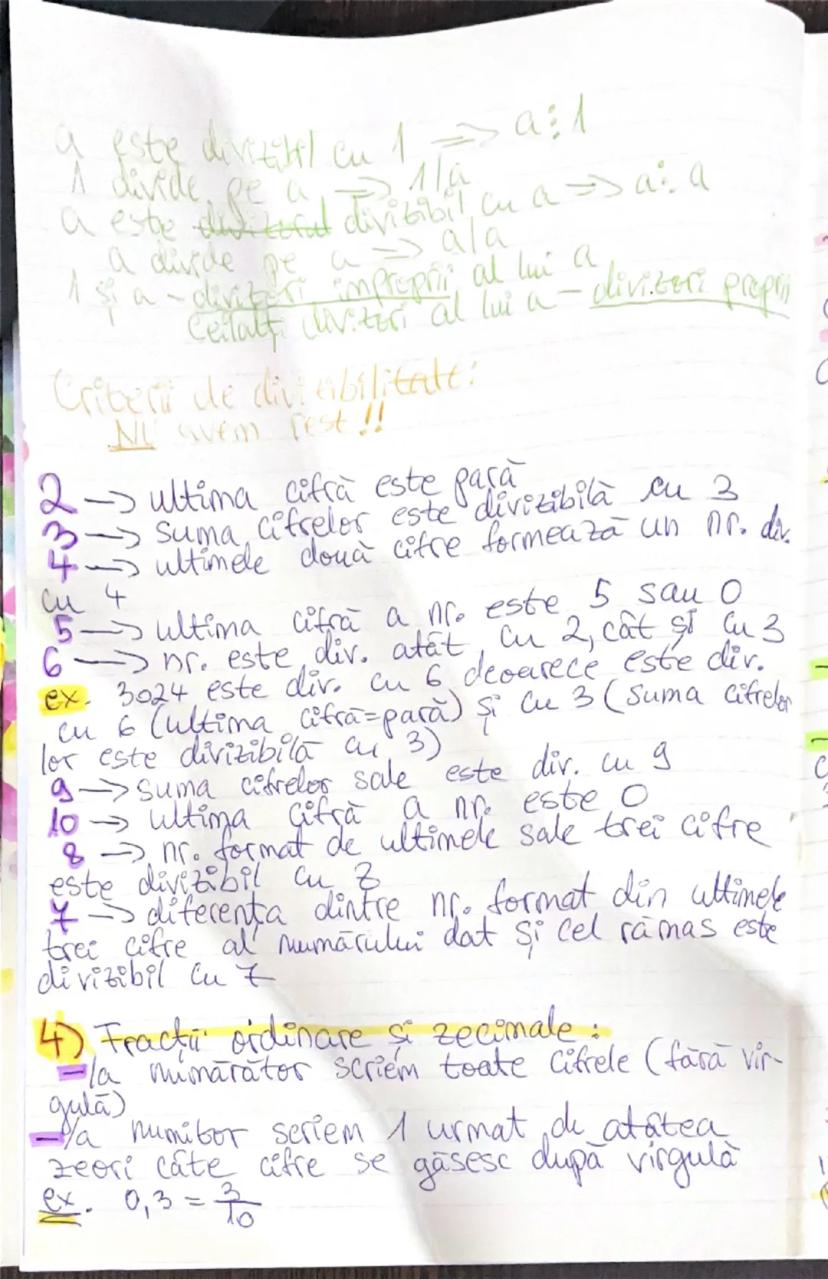 a este divizibil cu 1 => a⋮1
1 divide pe a => 1/a
a este divizorul divizibil cu a => a⋮a
a divide pe a => a/a
1 și a - divizori improprii al lui a
Ceilalți divizori al lui a - divizori proprii
Criterii de divizibilitate:
NU avem rest!!
2 -> ultima cifră este pară
3 -> suma cifrelor este divizibilă cu 3
4 -> ultimele două cifre formează un nr. div.
cu 4
5 -> ultima cifră a nr. este 5 sau 0
6 -> nr. este div. atât cu 2, cât și cu 3
ex. 3024 este div. cu 6 deoarece este div.
cu 6 (ultima cifră=pară) și cu 3 (suma cifrelor
lor este divizibilă cu 3)
9 -> suma cifrelor sale este div. cu 9
10 -> ultima cifră a nr. este 0
8 -> nr. format de ultimele sale trei cifre
este divizibil cu 8
7 -> diferența dintre nr. format din ultimele
trei cifre al numărului dat și cel rămas este
divizibil cu 7
4) Fracții ordinare și zecimale:
- la numărător scriem toate cifrele (fără vir-
gulă)
- la numitor scriem 1 urmat de atâtea
zeori câte cifre se găsesc după virgulă
ex. 0,3 = 3/10